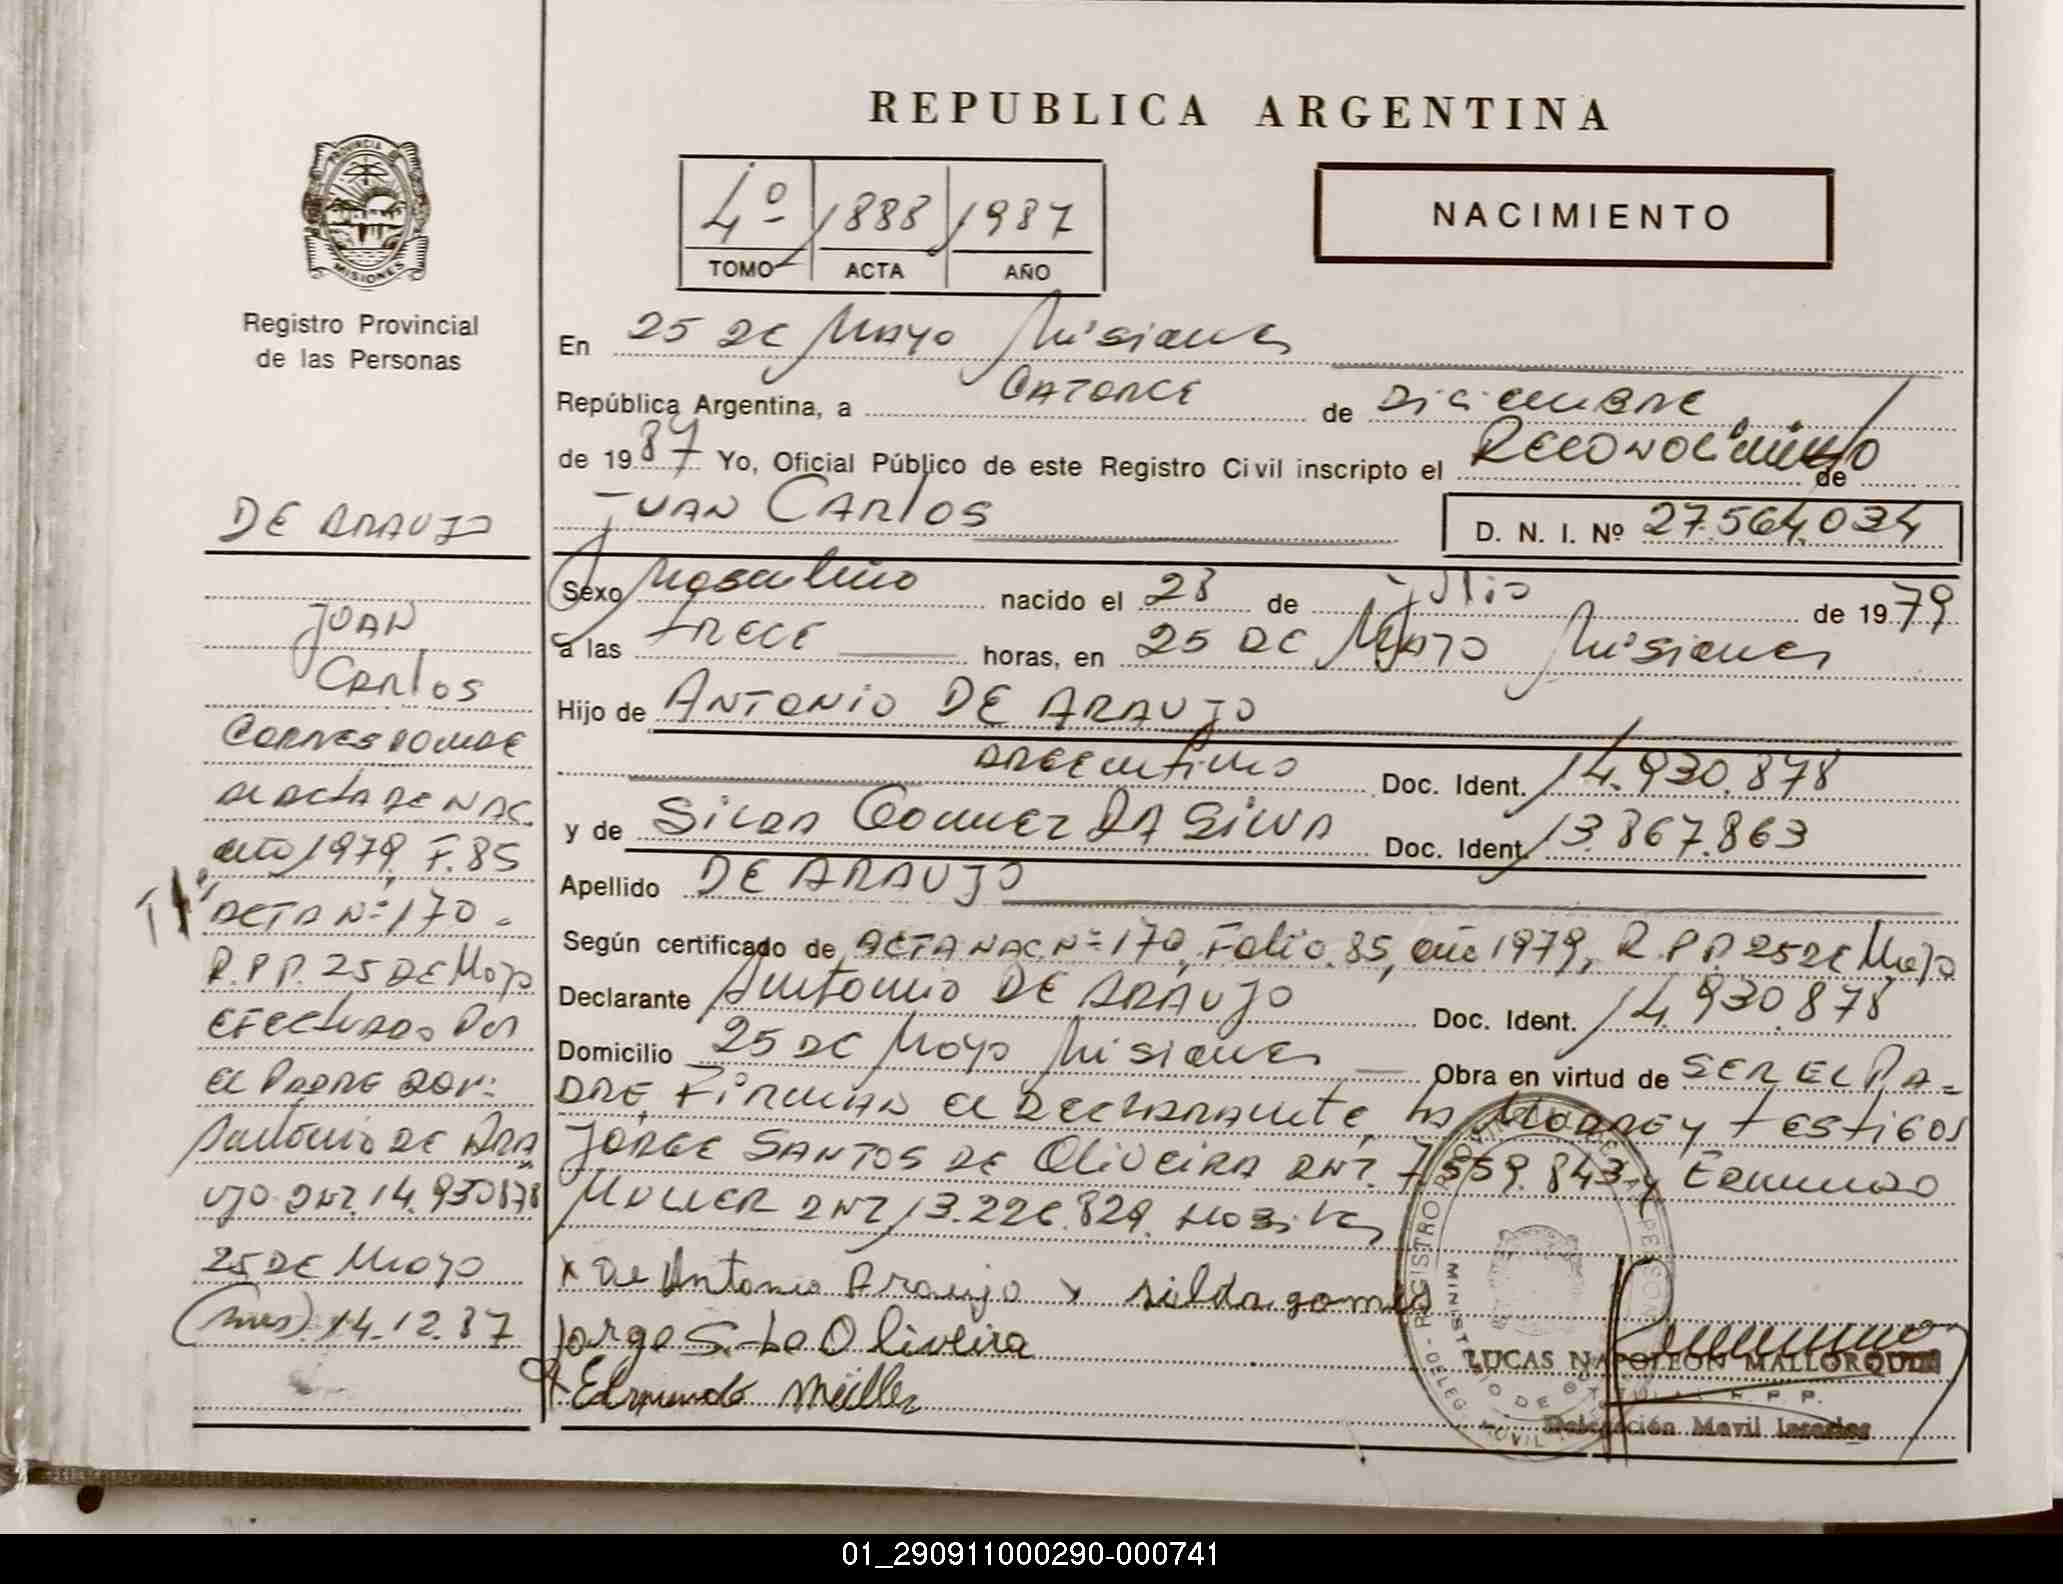 REPUBLICA ARGENTINA
PROVINCIA DE
MISIONES
Registro Provincial
de las Personas
4º 1888 1987
TOMO ACTA AÑO
NACIMIENTO
En 25 DE MAYO Misiones
República Argentina, a CATORCE de Diciembre
de 1987 Yo, Oficial Público de este Registro Civil inscripto el Reconocimiento de
JUAN CARlos D. N. I. Nº 27.564.034
Sexo Masculino nacido el 28 de Julio de 1979
a las TRECE horas, en 25 DE MAYO Misiones
Hijo de ANTONIO DE ARAUJO
ARGENtino Doc. Ident. 14.930.878
y de SILDA GOMEZ DA SILVA Doc. Ident. 13.867.863
Apellido DE ARAUJO
Según certificado de ACTA NAC. Nº 170, Folio 85, año 1979, R.P.P. 25 DE Mayo
Declarante Antonio DE ARAUJO Doc. Ident. 14.930.878
Domicilio 25 DE Mayo Misiones Obra en virtud de SER EL PA=
DRE, FirmAN el DEClarante, la MADRE y testigos
JORGE SANTOS DE OLIVEIRA DNI. 7.559.843 y Edmundo
MULLER DNI 13.226.829. Hábiles
x De Antonio Araujo x silda gomes
Jorge S. de Oliveira
x Edmundo Müller
LUCAS NAPOLEON MALLORQUIN
TITULAR R.P.P.
Delegación Movil
DE ARAUJO
JUAN
CARlos
CORRESPONDE
al acta DE NAC.
año 1979, F. 85
Tº 1º
ACTA Nº 170.
R.P.P. 25 DE Mayo
EFECtuado Por
el PADRE Don:
Antonio DE ARA
UJO DNI. 14.930878
25 DE Mayo
(Mnes). 14.12.87
01_290911000290-000741